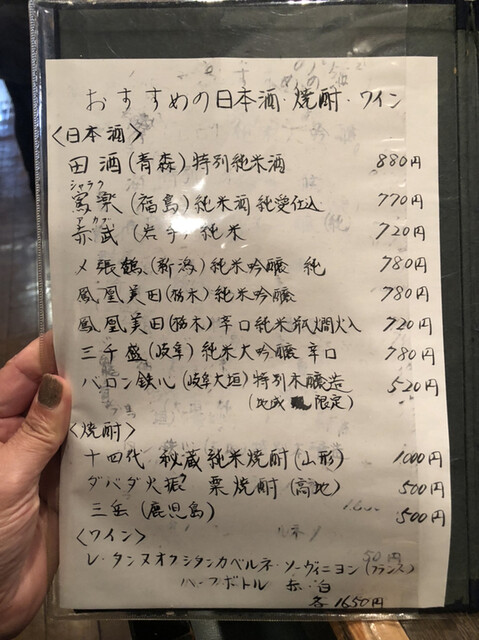 おすすめの日本酒・焼酎・ワイン
<日本酒>
田酒(青森)特別純米酒 880円
シャラク
寫楽(福島)純米酒 純愛仕込 770円
アカブ
赤武(岩手)純米 720円
〆張鶴(新潟)純米吟醸 純 780円
鳳凰美田(栃木)純米吟醸 780円
鳳凰美田(栃木)辛口純米瓶燗火入 720円
三千盛(岐阜)純米大吟醸 辛口 780円
バロン鉄心(岐阜大垣)特別本醸造 520円
(地域限定)
<焼酎>
十四代 秘蔵純米焼酎(山形) 1000円
ダバダ火振 栗焼酎(高知) 500円
三岳(鹿児島) 500円
<ワイン>
レ・タンヌオクシタンカベルネ・ソーヴィニヨン(フランス)
ハーフボトル 赤・白
各1650円